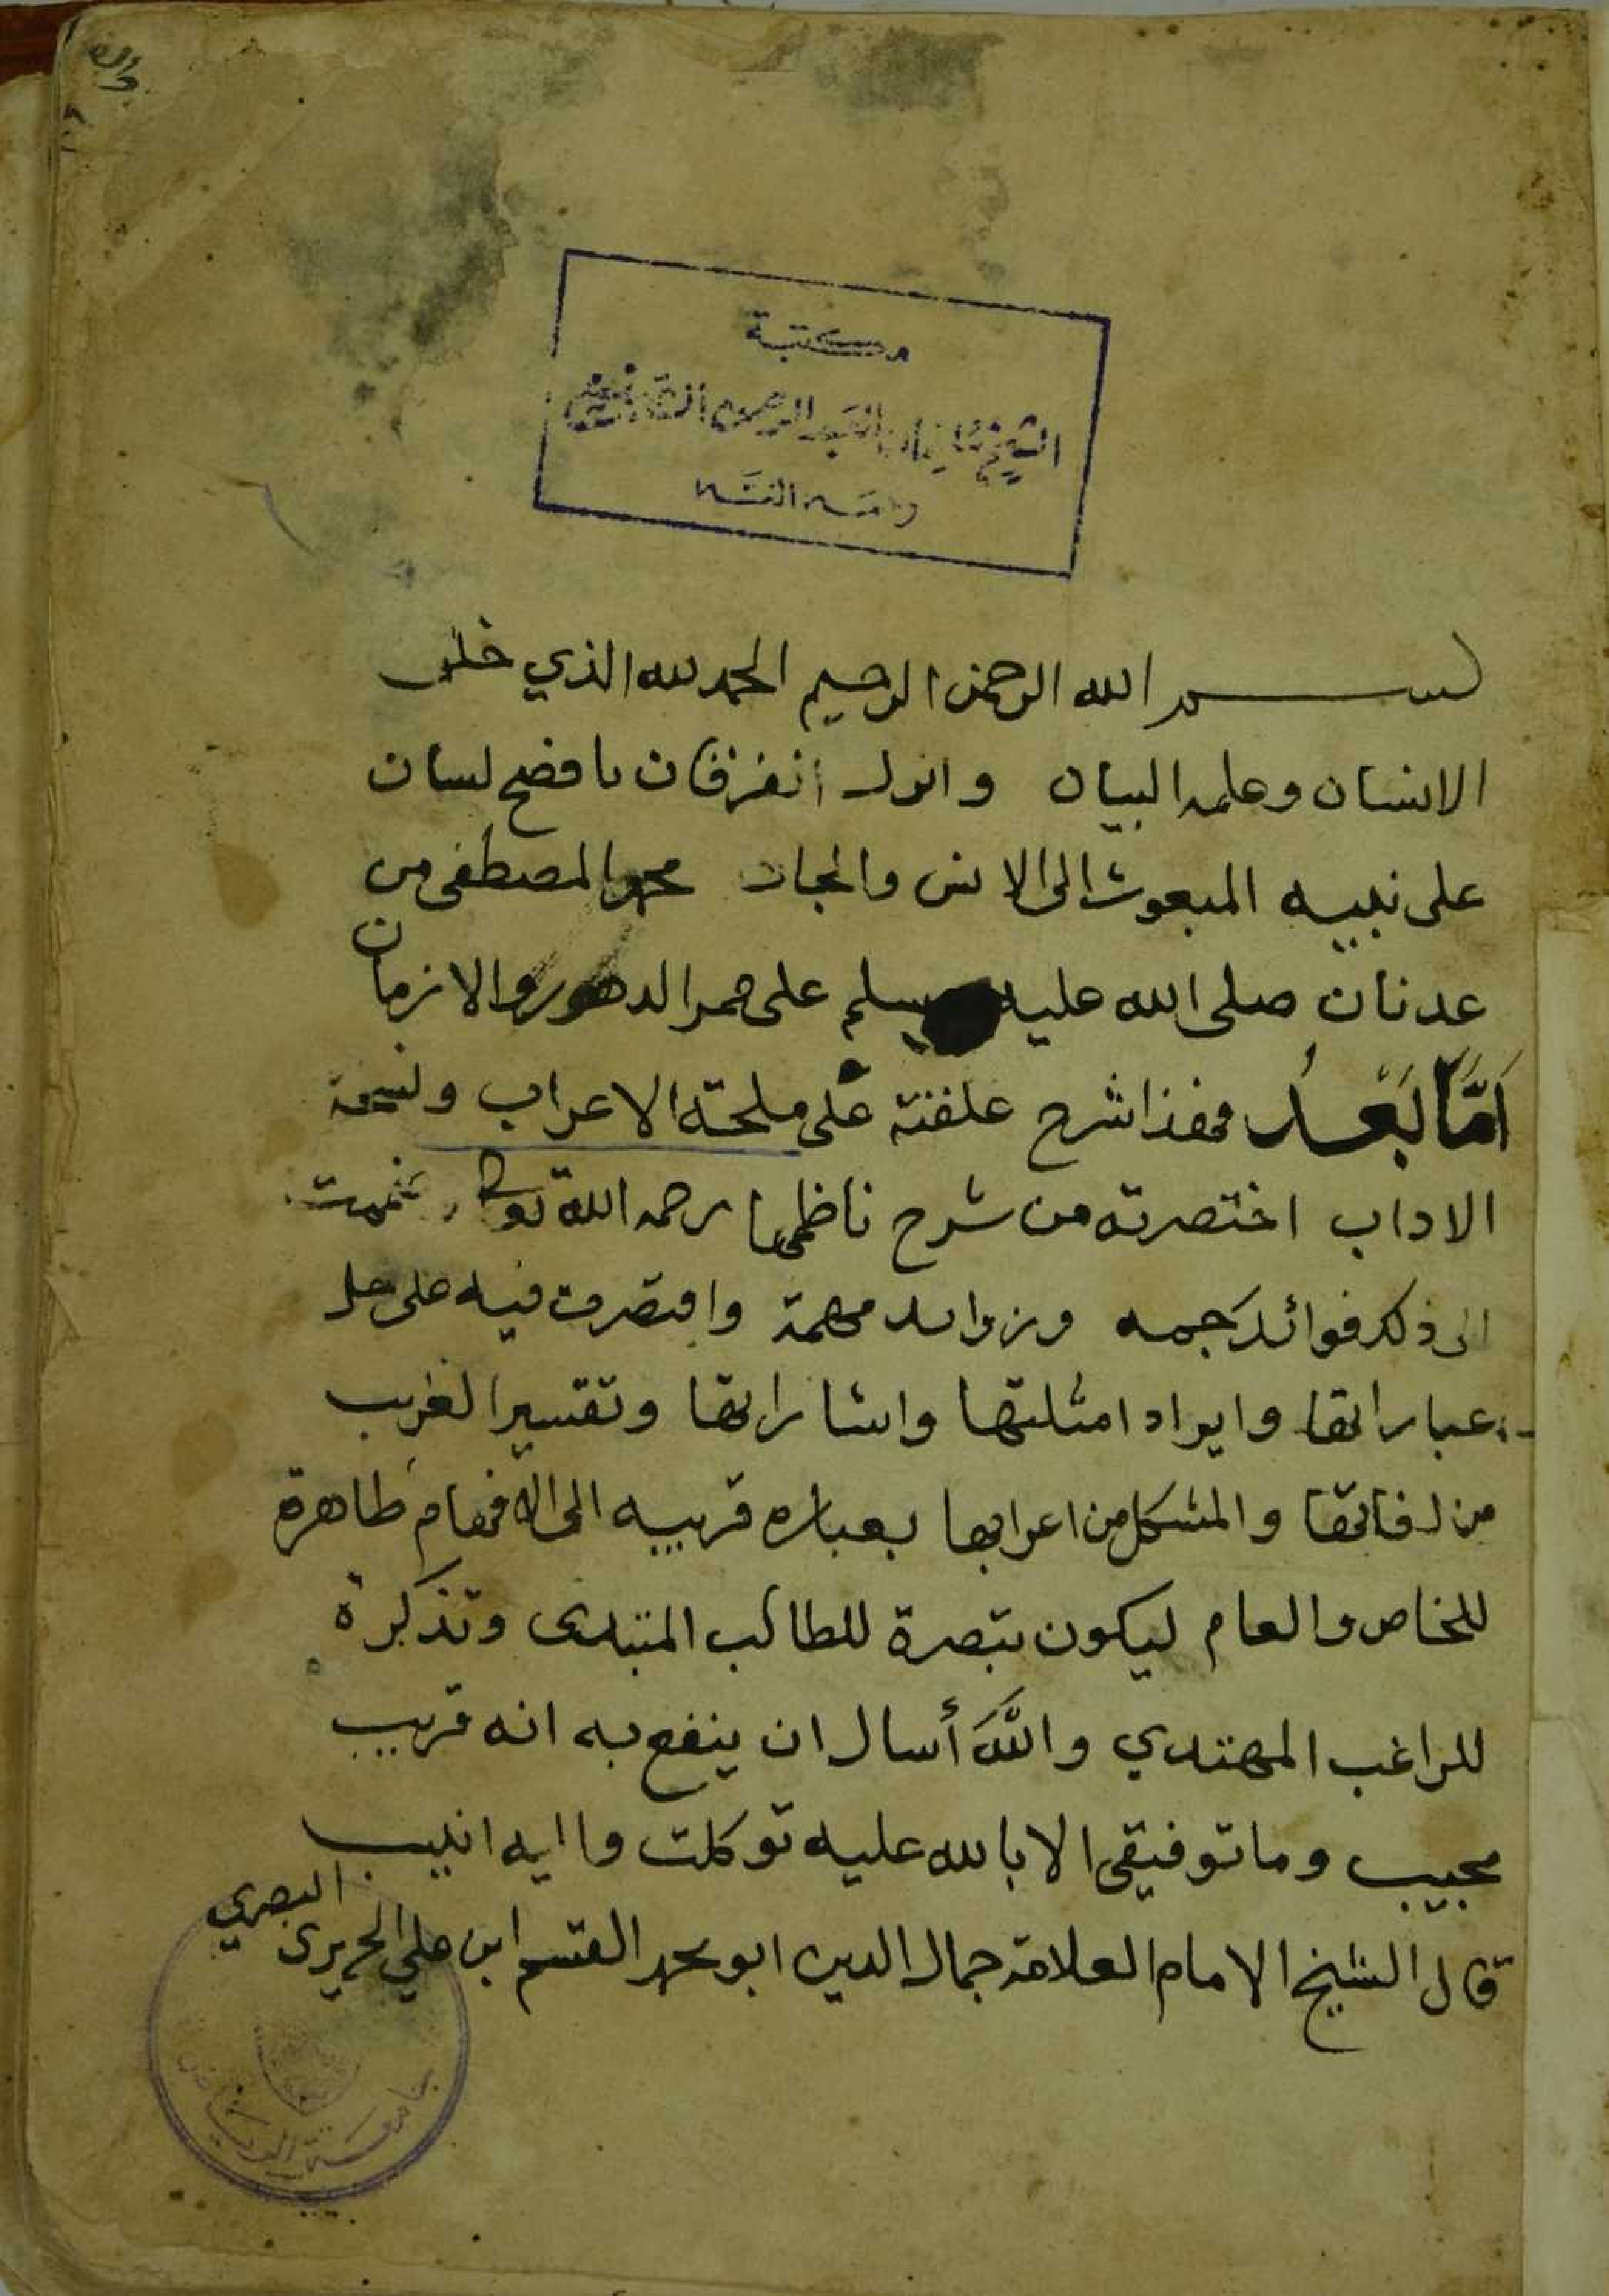 مكتبة
الشيخ العبد الرحمن
بسم الله الرحمن الرحيم الحمد لله الذي خلق
الانسان وعلمه البيان وانزل الفرقان بافصح لسان
على نبيه المبعوث الى الانس والجان محمد المصطفى من
عدنان صلى الله عليه وسلم على ممر الدهور والازمان
اَمَّا بَعْدُ فهذا شرح علقته على ملحة الاعراب ونسيمة
الاداب اختصرته من شرح ناظمها رحمه الله تعالى وضممت
الى ذلك فوائد جمه وزوايد مهمة واقتصرت فيه على حل
عباراتها وايراد امثلتها واشاراتها وتفسير الغريب
من لغاتها والمشكل من اعرابها بعباره قريبه الى الافهام ظاهرة
للخاص والعام ليكون تبصرة للطالب المبتدى وتذكرة
للراغب المهتدي واللهَ أسال ان ينفع به انه قريب
مجيب وما توفيقى الا بالله عليه توكلت واليه انيب
قال الشيخ الامام العلامة جمال الدين ابو محمد القسم ابن علي الحريرى البصري
جامعة الرياض